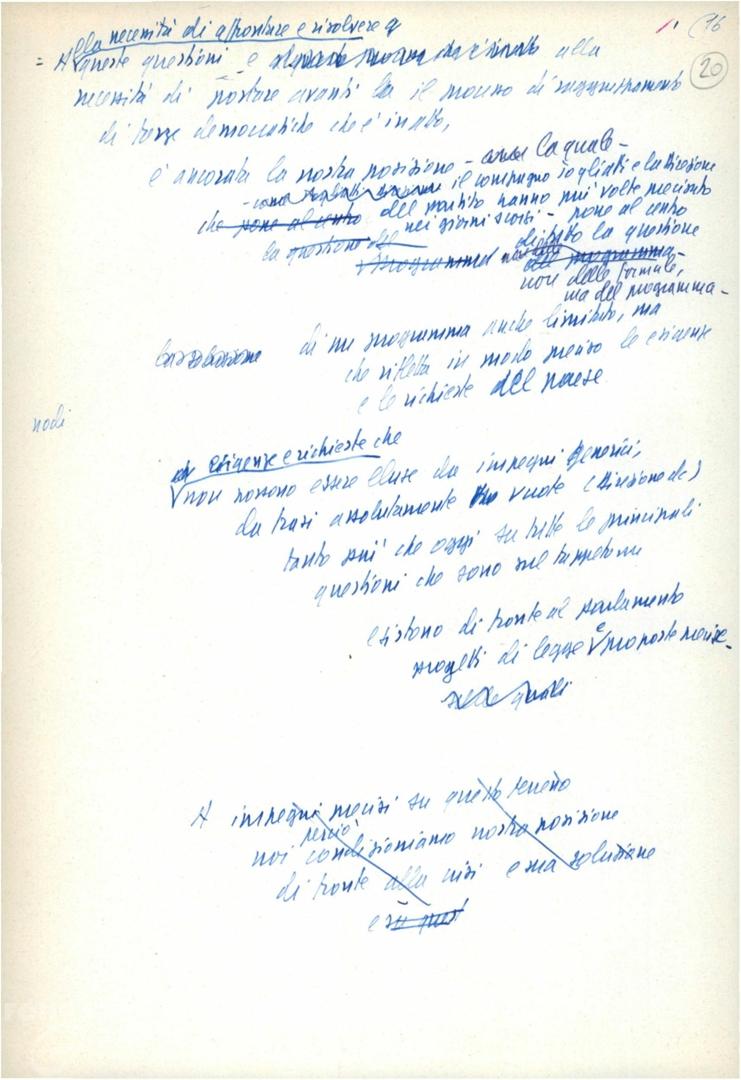 16
20
alla necessità di affrontare e risolvere q
= A queste questioni e alla
necessità di portare avanti il processo di raggruppamento
di forze democratiche che è in atto,
è ancorata la nostra posizione - la quale -
- come il compagno Togliatti e la Direzione
che pone al centro del partito hanno più volte precisato
nei giorni scorsi - pone al centro
la questione del di tutto la questione
programma del programma -
non delle formule,
ma del programma -
di un programma anche limitato, ma
che rifletta in modo preciso le esigenze
e le richieste del paese
nodi
esigenze e richieste che
non possono essere eluse da impegni generici,
da frasi assolutamente vuote (Direzione dc)
tanto più che oggi su tutte le principali
questioni che sono sul tappeto
esistono di fronte al Parlamento
progetti di legge e proposte precise -
sulle quali
A impegni precisi su questo terreno
perciò
noi condizioniamo nostra posizione
di fronte alla crisi e sua soluzione
e su quest